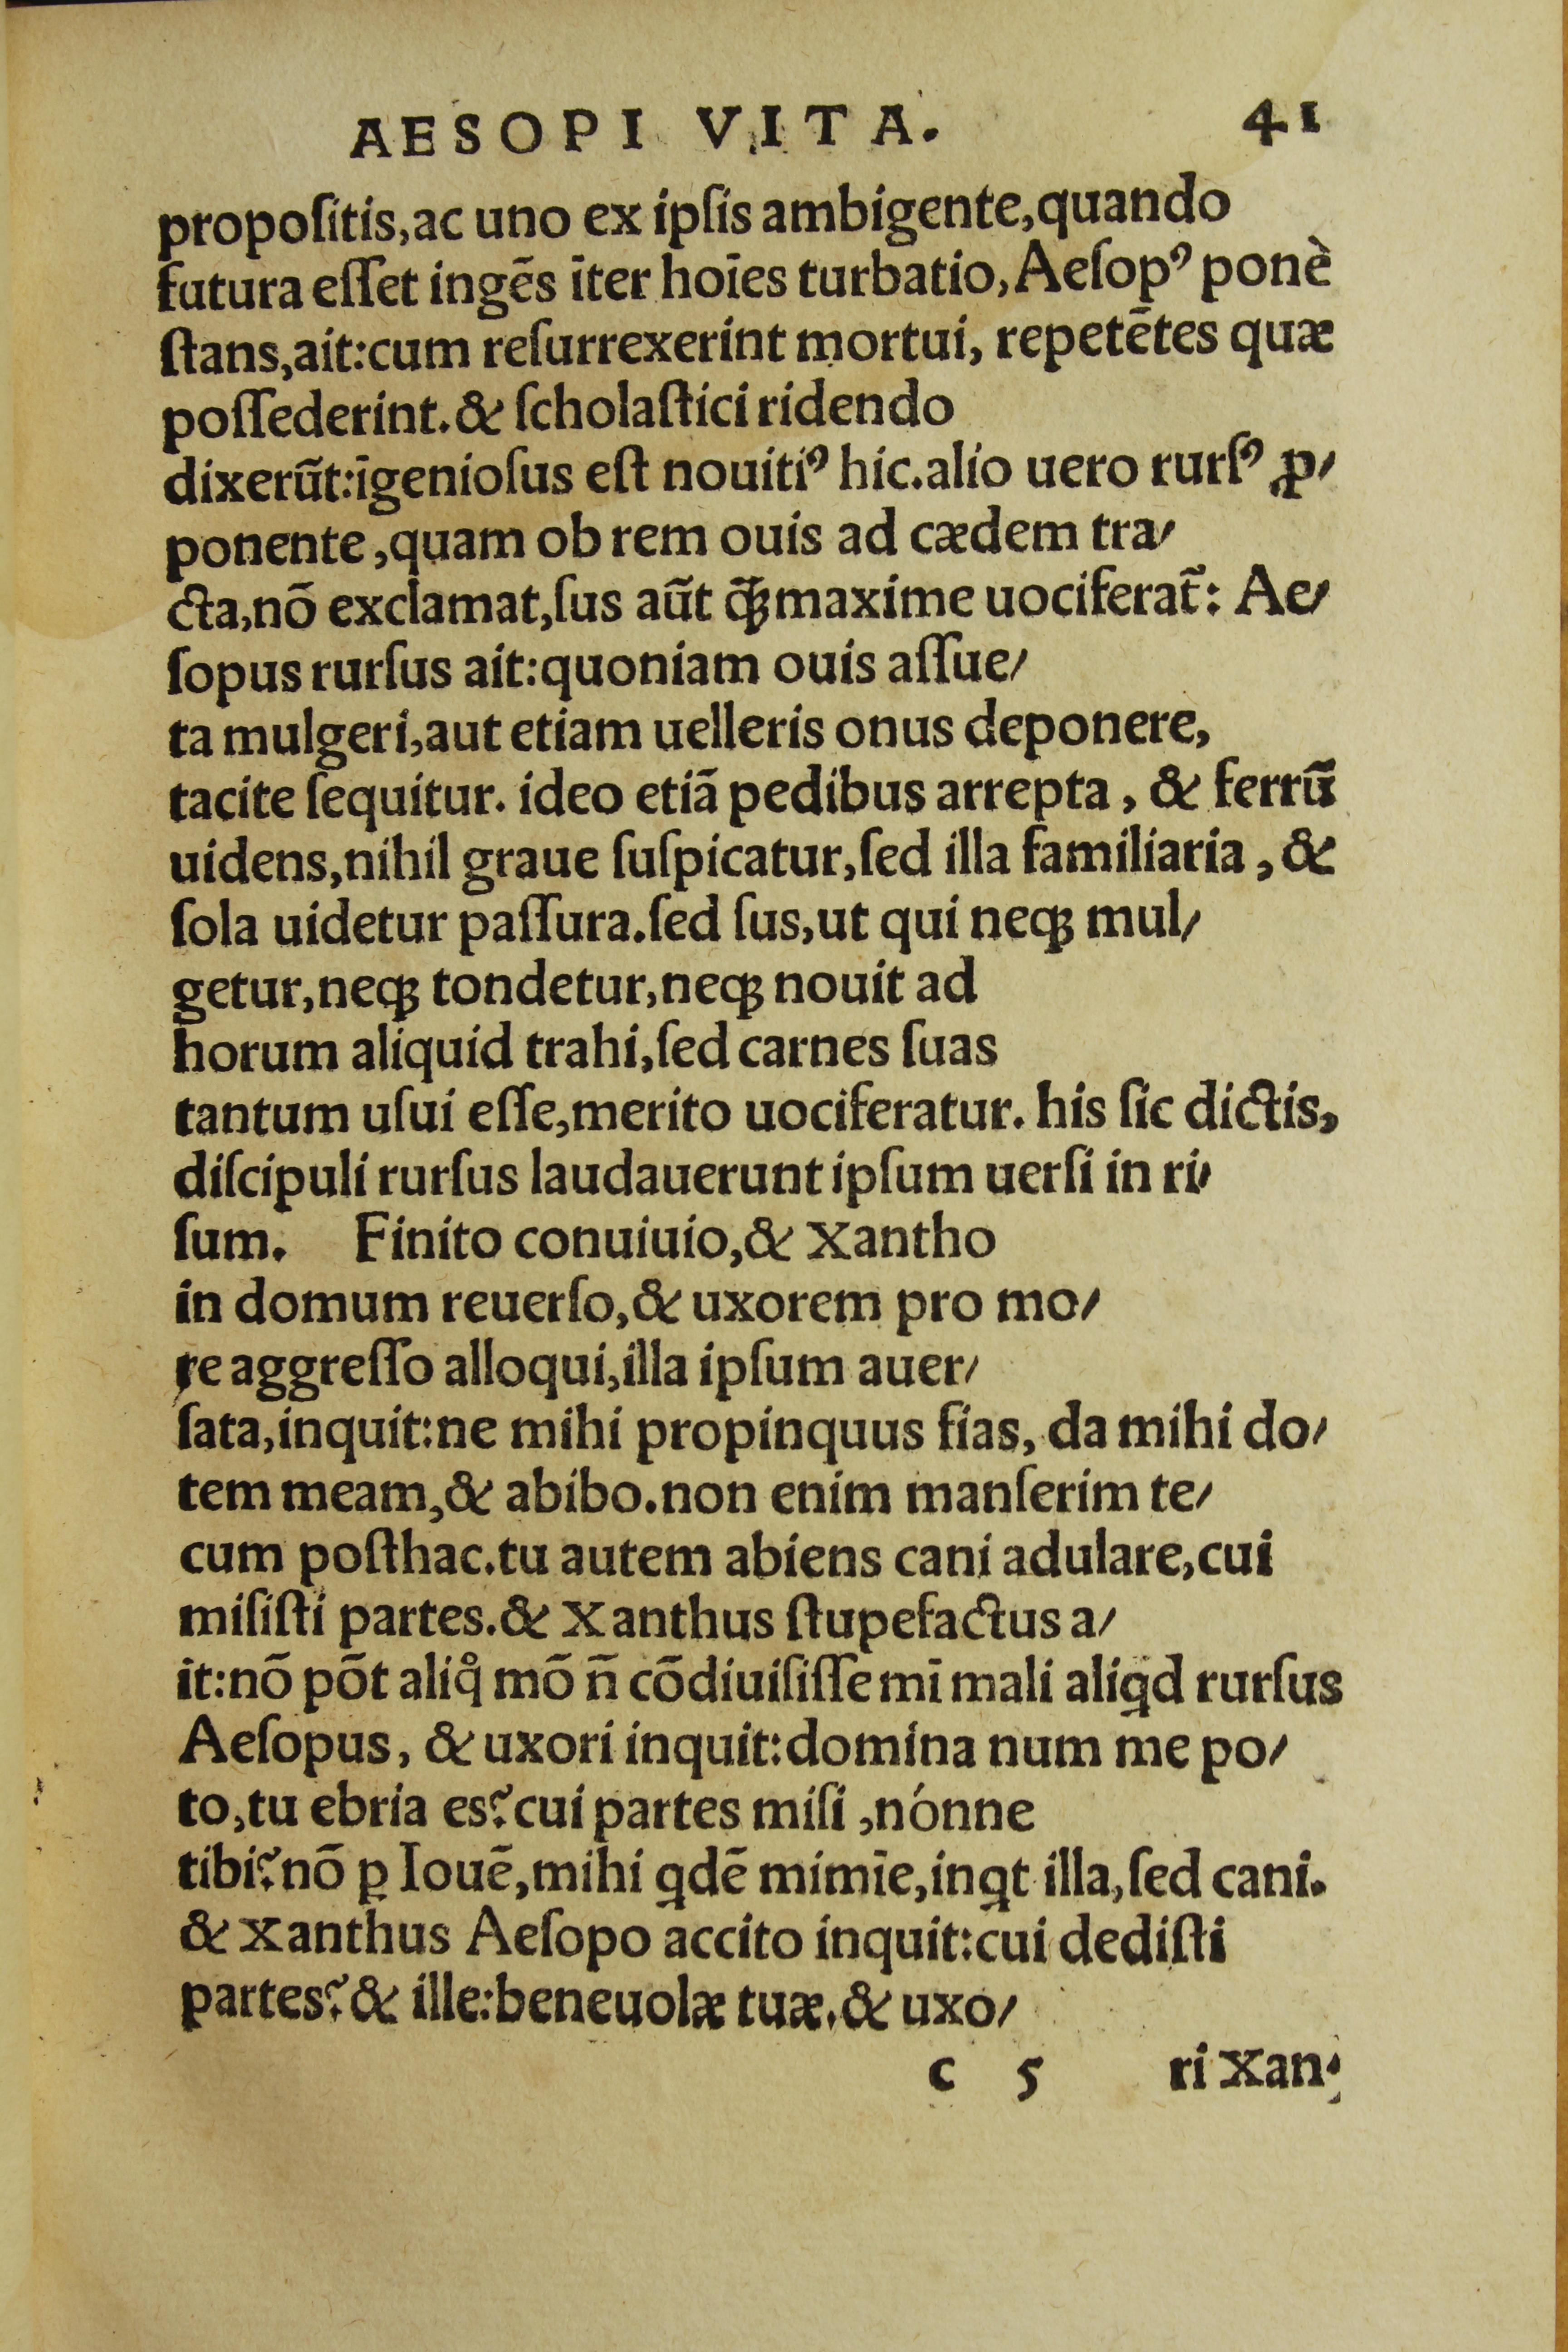 AESOPI VITA. 41
propoſitis,ac uno ex ipſis ambigente,quando
futura eſſet ingēs īter hoīes turbatio,Aeſopꝰ ponè
ſtans,ait:cum reſurrexerint mortui, repetētes quæ
poſſederint.& ſcholaſtici ridendo
dixerūt:īgenioſus eſt nouitiꝰ hic.alio uero rurſꝰ ꝓ/
ponente,quam ob rem ouis ad cædem tra/
cta,nō exclamat,ſus aūt q̄ꝫ maxime uociferat̃: Ae/
ſopus rurſus ait:quoniam ouis aſſue/
ta mulgeri,aut etiam uelleris onus deponere,
tacite ſequitur. ideo etiā pedibus arrepta, & ferrū
uidens,nihil graue ſuſpicatur,ſed illa familiaria, &
ſola uidetur paſſura.ſed ſus,ut qui neqꝫ mul/
getur,neqꝫ tondetur,neqꝫ nouit ad
horum aliquid trahi,ſed carnes ſuas
tantum uſui eſſe,merito uociferatur. his ſic dictis,
diſcipuli rurſus laudauerunt ipſum uerſi in ri/
ſum. Finito conuiuio,& Xantho
in domum reuerſo,& uxorem pro mo/
re aggreſſo alloqui,illa ipſum auer/
ſata,inquit:ne mihi propinquus fias, da mihi do/
tem meam,& abibo.non enim manſerim te/
cum poſthac.tu autem abiens cani adulare,cui
miſiſti partes.& Xanthus ſtupefactus a/
it:nō pōt aliq̊ mō n̄ cōdiuiſiſſe mī mali aliꝗd rurſus
Aeſopus, & uxori inquit:domina num me po/
to,tu ebria es?cui partes miſi,nónne
tibi?nō ꝑ Iouē,mihi ꝗdē mimīe,inꝗt illa,ſed cani.
& Xanthus Aeſopo accito inquit:cui dediſti
partes?& ille:beneuolæ tuæ.& uxo/
c 5 ri Xan/